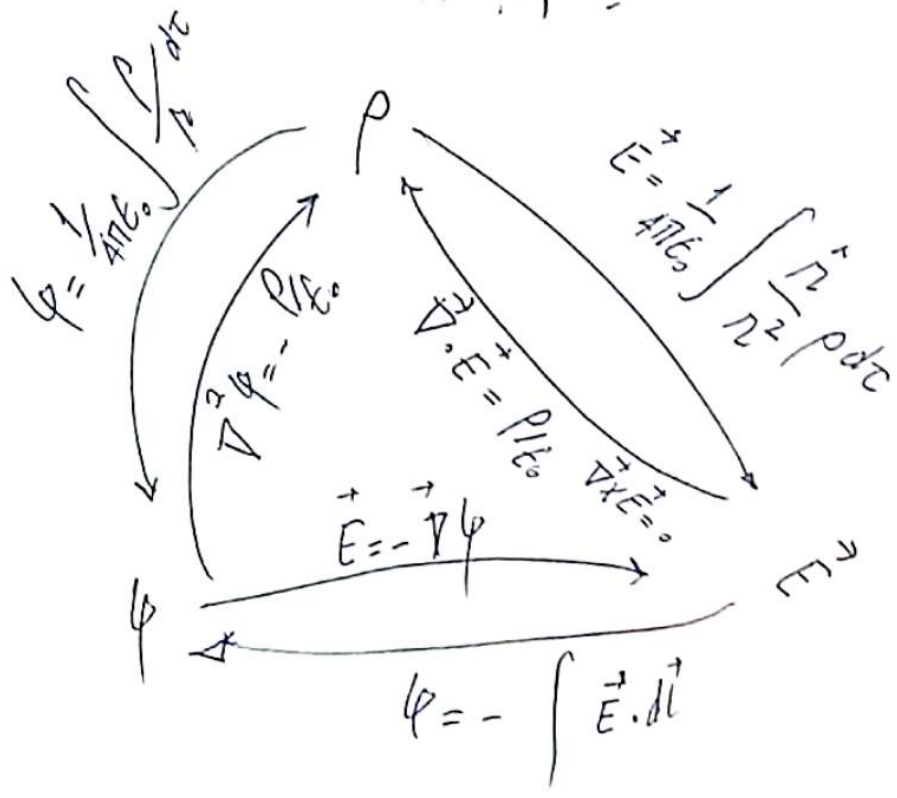 ρ
φ = 1/4πε₀ ∫ ρ/r dτ
E⃗ = 1/4πε₀ ∫ r̂/r² ρdτ
∇²φ = - ρ/ε₀
∇⃗.E⃗ = ρ/ε₀ ∇⃗×E⃗ = 0
E⃗ = - ∇⃗φ
φ
E⃗
φ = - ∫ E⃗.dl⃗